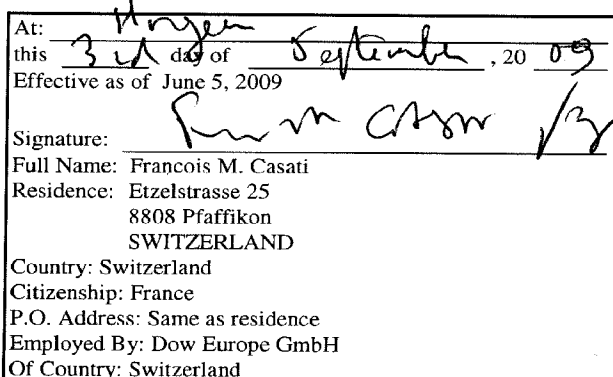 At: Horgen
this 3rd day of September, 20 09
Effective as of June 5, 2009
Signature:
Full Name: Francois M. Casati
Residence: Etzelstrasse 25
8808 Pfaffikon
SWITZERLAND
Country: Switzerland
Citizenship: France
P.O. Address: Same as residence
Employed By: Dow Europe GmbH
Of Country: Switzerland